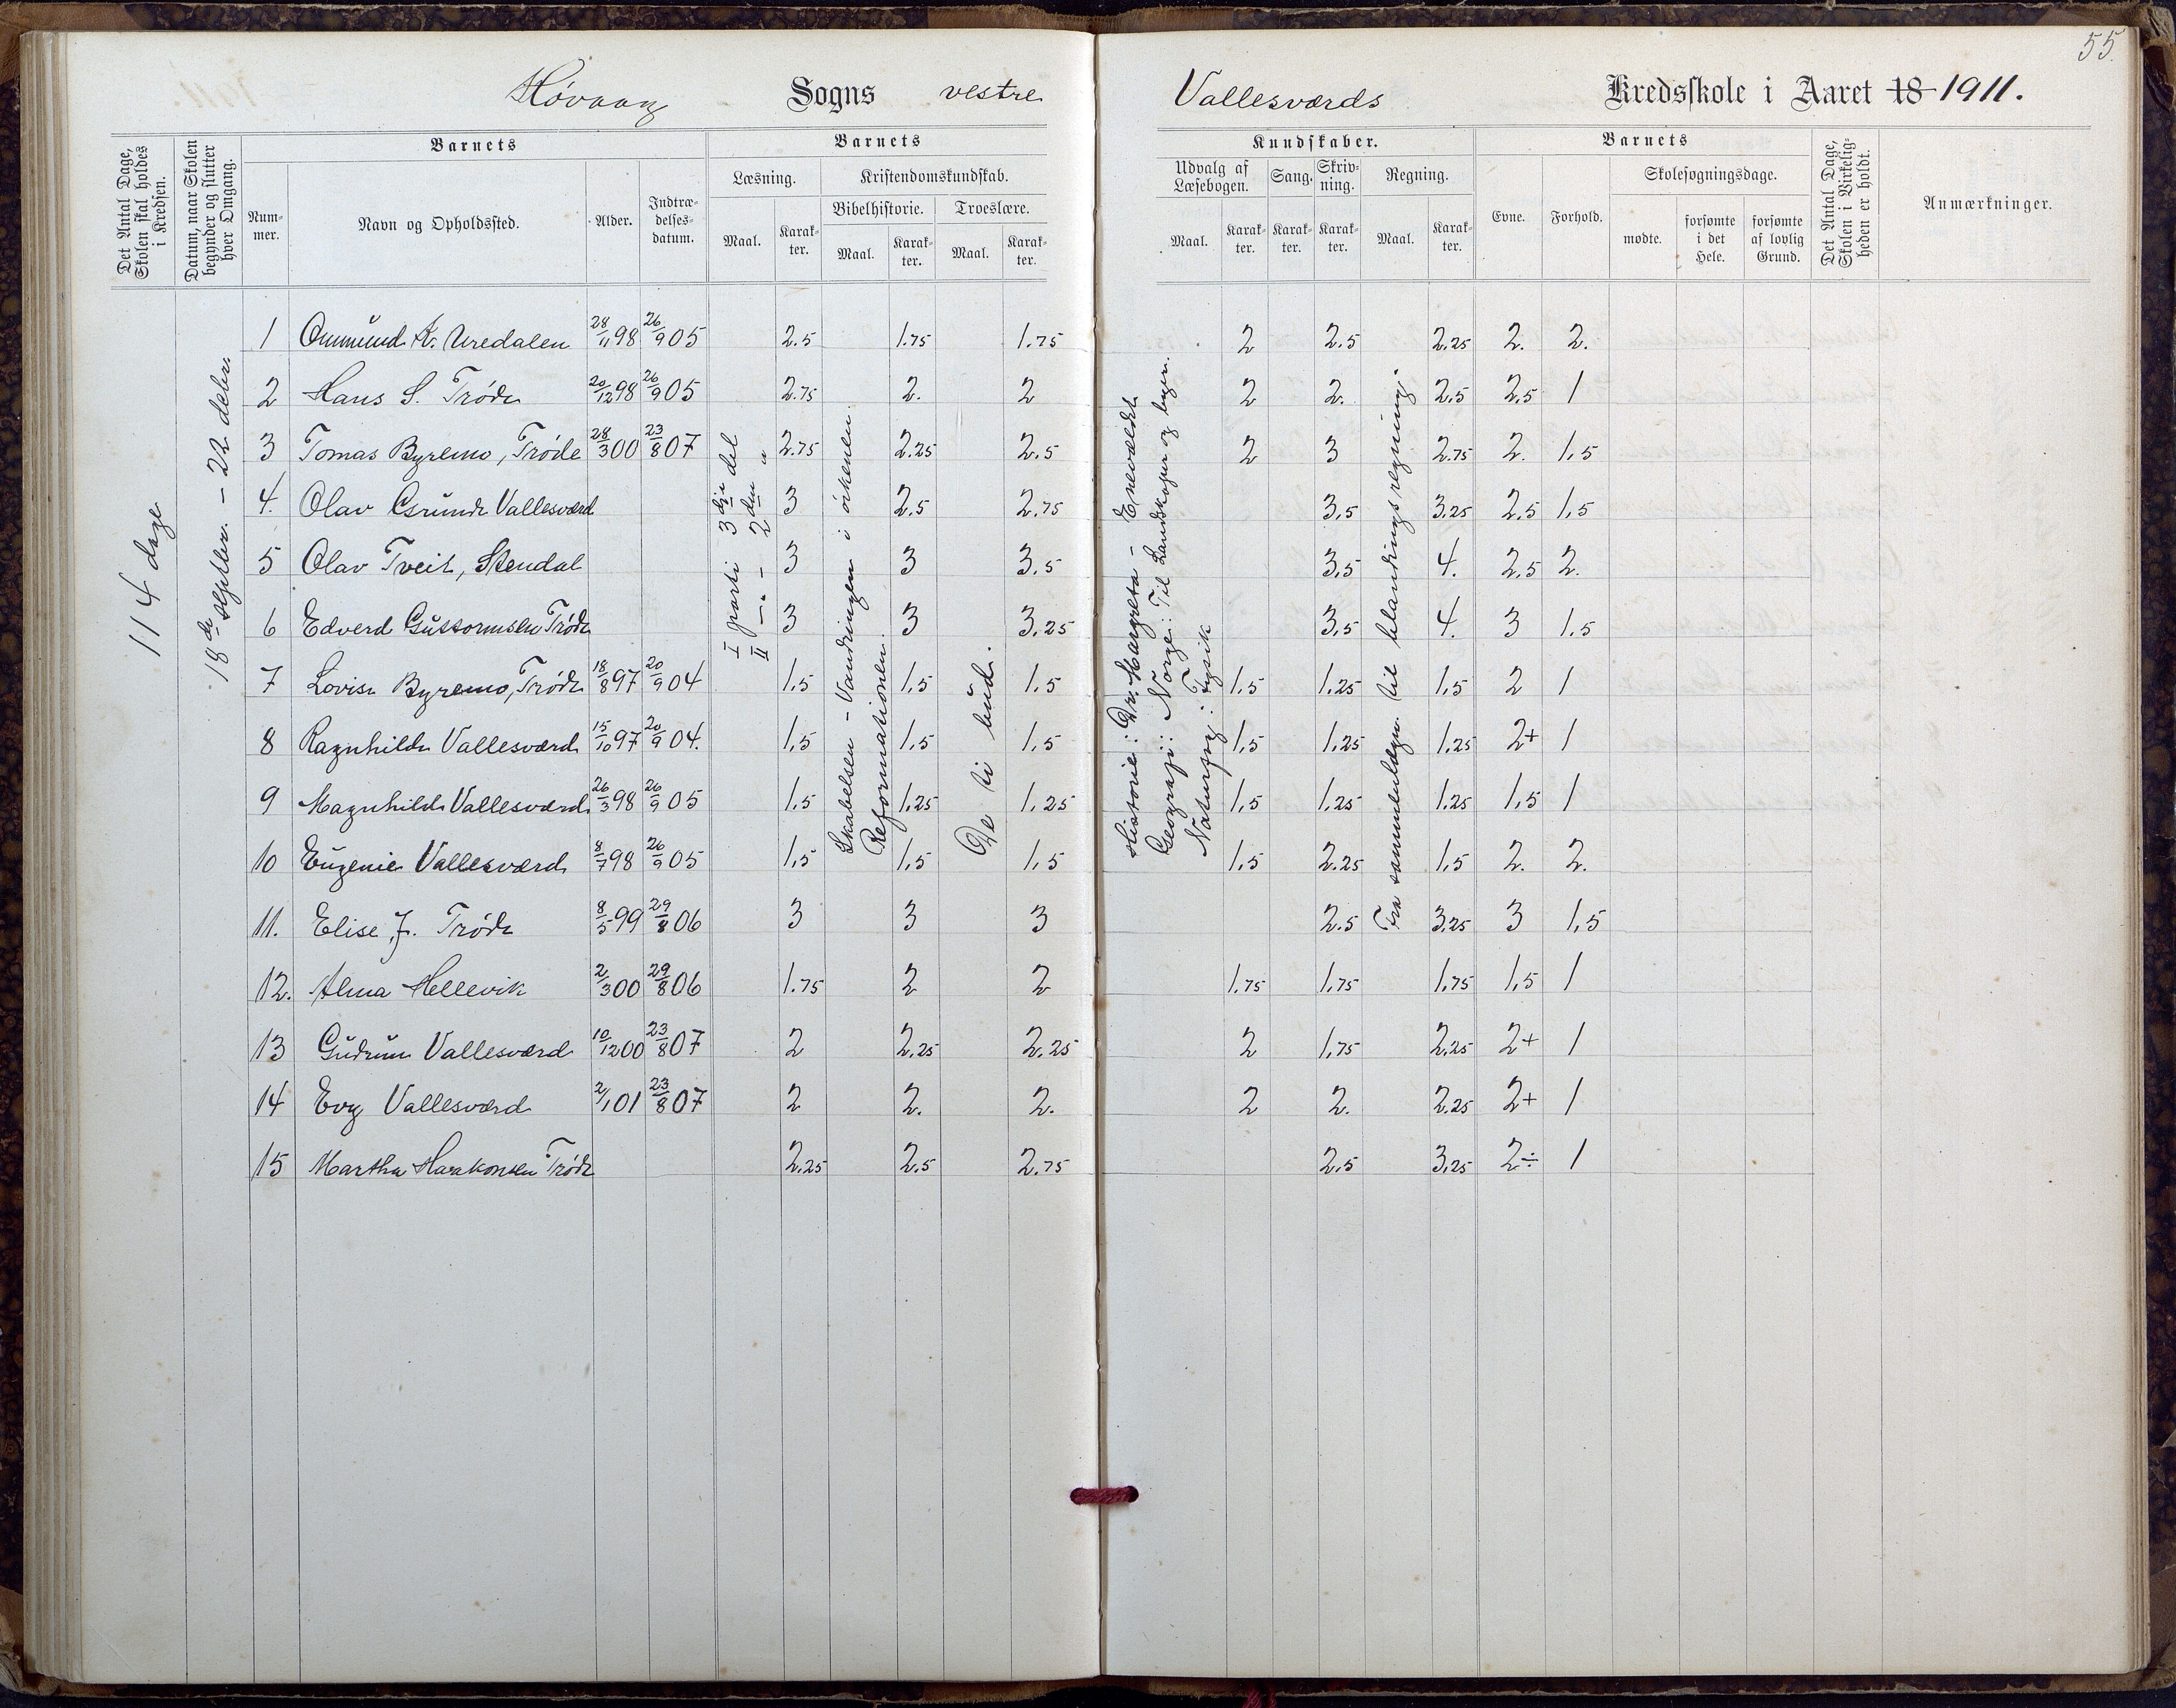 55.
Høvaag Sogns vestre Vallesværds Kredsskole i Aaret 18 1911.
Det Antal Dage, Skolen skal holdes i Kredsen.
Datum, naar Skolen begynder og slutter hver Omgang.
Barnets
Num-mer.
Navn og Opholdssted.
Alder.
Indtræ-delses-datum.
Barnets
Læsning.
Maal.
Karak-ter.
Kristendomskundskab.
Bibelhistorie.
Maal.
Karak-ter.
Troeslære.
Maal.
Karak-ter.
Kundskaber.
Udvalg af Læsebogen.
Maal.
Karak-ter.
Sang.
Karak-ter.
Skriv-ning.
Karak-ter.
Regning.
Maal.
Karak-ter.
Barnets
Evne.
Forhold.
Skolesøgningsdage.
mødte.
forsømte i det Hele.
forsømte af lovlig Grund.
Det Antal Dage, Skolen i Virkelig-heden er holdt.
Anmærkninger.
114 dage
18de septbr. - 22 debr.
I parti 3dje del
II -"- 2den "
Skabelsen - Vandringen i ørkenen.
Reformationen.
De ti bud.
Historie: Dr. Margreta - Enevældet
Geografi: Norge: Til Landskaper og byer.
Naturfag: Fysik
Fra sammenlægn. til blandingsregning.
1 Ommund K. Uredalen 28/11 98 26/9 05 2.5 1.75 1.75 2 2.5 2.25 2. 2.
2 Hans S. Trøde 20/12 98 26/9 05 2.75 2. 2 2 2. 2.5 2,5 1
3 Tomas Byremo, Trøde 28/3 00 23/8 07 2.75 2.25 2.5 2 3 2.75 2. 1,5
4. Olav Gsrunde Vallesværd 3 2,5 2.75 3,5 3.25 2,5 1,5
5 Olav Tveit, Stendal 3 3 3.5 3,5 4. 2,5 2.
6 Edverd Guttormsen Trøde 3 3 3.25 3,5 4. 3 1.5
7 Lovise Byremo, Trøde 18/8 97 20/9 04 1.5 1.5 1.5 1.5 1.25 1,5 2 1
8 Ragnhilde Vallesværd 15/10 97 20/9 04. 1,5 1,5 1,5 1,5 1.25 1.25 2+ 1
9 Magnhilde Vallesværd 26/3 98 26/9 05 1.5 1.25 1.25 1,5 1.25 1.25 1,5 1
10 Eugenie Vallesværd 8/7 98 26/9 05 1,5 1,5 1,5 1,5 2.25 1,5 2. 2.
11. Elise J. Trøde 8/5 99 29/8 06 3 3 3 2.5 3,25 3 1,5
12. Alma Hellevik 2/3 00 29/8 06 1.75 2 2 1.75 1,75 1,75 1,5 1
13 Gudrun Vallesværd 10/12 00 23/8 07 2 2,25 2.25 2 1,75 2.25 2+ 1
14 Evy Vallesværd 2/1 01 23/8 07 2 2. 2. 2 2. 2.25 2+ 1
15 Martha Haakonsen Trøde 2.25 2.5 2.75 2,5 3,25 2÷ 1